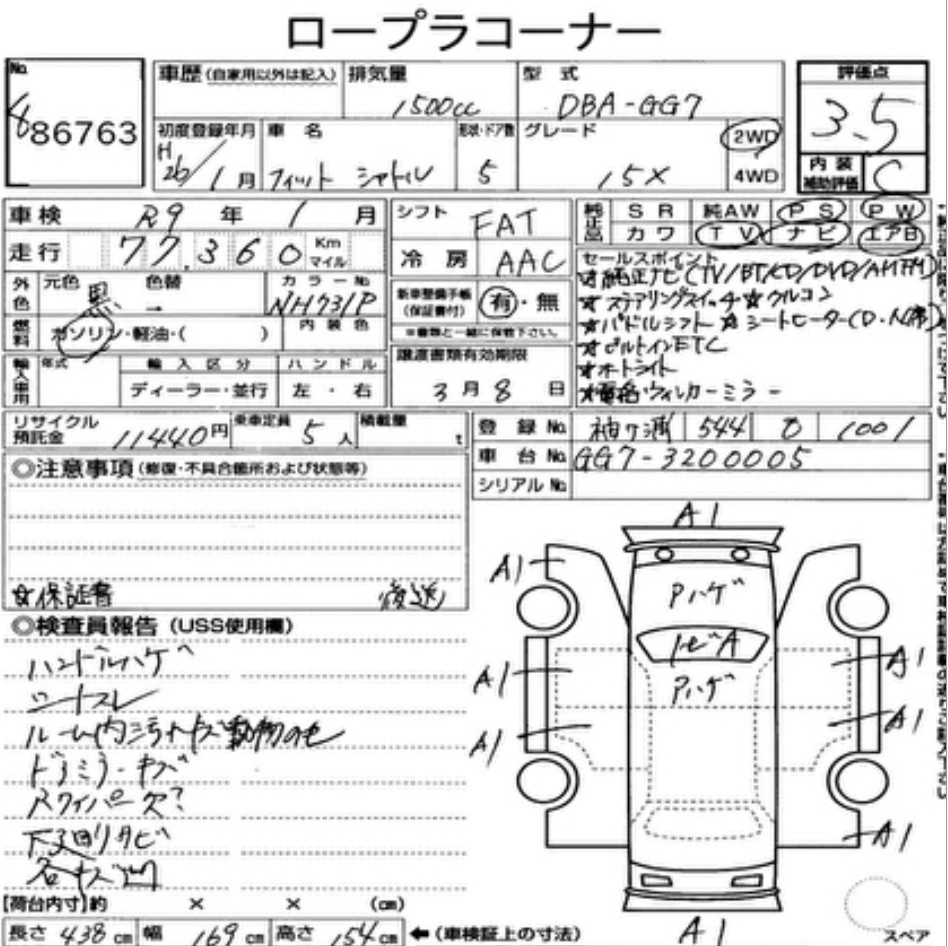 ロープラコーナー
No
86763
車歴 (自家用以外は記入) 排気量 1500cc 型式 DBA-GG7
評価点 3.5
初度登録年月 H 26/1月 車名 フィット シャトル 形状・ドア数 5 グレード 15X 2WD 4WD
内装補助評価 C
車検 R9年 1月 シフト FAT
純正品 SR 純AW PS PW
カワ TV ナビ エアB
走行 77,360 Km マイル 冷房 AAC
セールスポイント
☆純正ナビ(TV/BT/CD/DVD/AMFM)
外色 元色 黒 色替 → カラーNo NH731P
新車整備手帳 (保証書付) 有・無
☆ステアリングスイッチ ☆クルコン
燃料 ガソリン・軽油・( ) 内装色
※書類と一緒に保管下さい。
☆パドルシフト ☆シートヒーター
☆ビルトインETC
輸入車用 年式 輸入区分 ハンドル
ディーラー・並行 左・右
譲渡書類有効期限
3月8日
☆オートライト
☆電格ウィンカーミラー
リサイクル預託金 11440円 乗車定員 5人 積載量 t
登録No 袖ヶ浦 544 1001
車台No GG7-3200005
シリアルNo
◎注意事項 (修復・不具合箇所および状態等)
☆保証書 後送
◎検査員報告 (USS使用欄)
ハンドルハゲ
シートスレ
ルーム内汚れキズ動物の毛
ドアミラーキズ
Rワイパー欠?
下回りサビ
各キズ凹
A1
A1
Pハゲ
トビA
A1
Pハゲ
A1
A1
A1
A1
A1
スペア
【荷台内寸】約 × × (cm)
長さ 438cm 幅 169cm 高さ 154cm ←(車検証上の寸法)